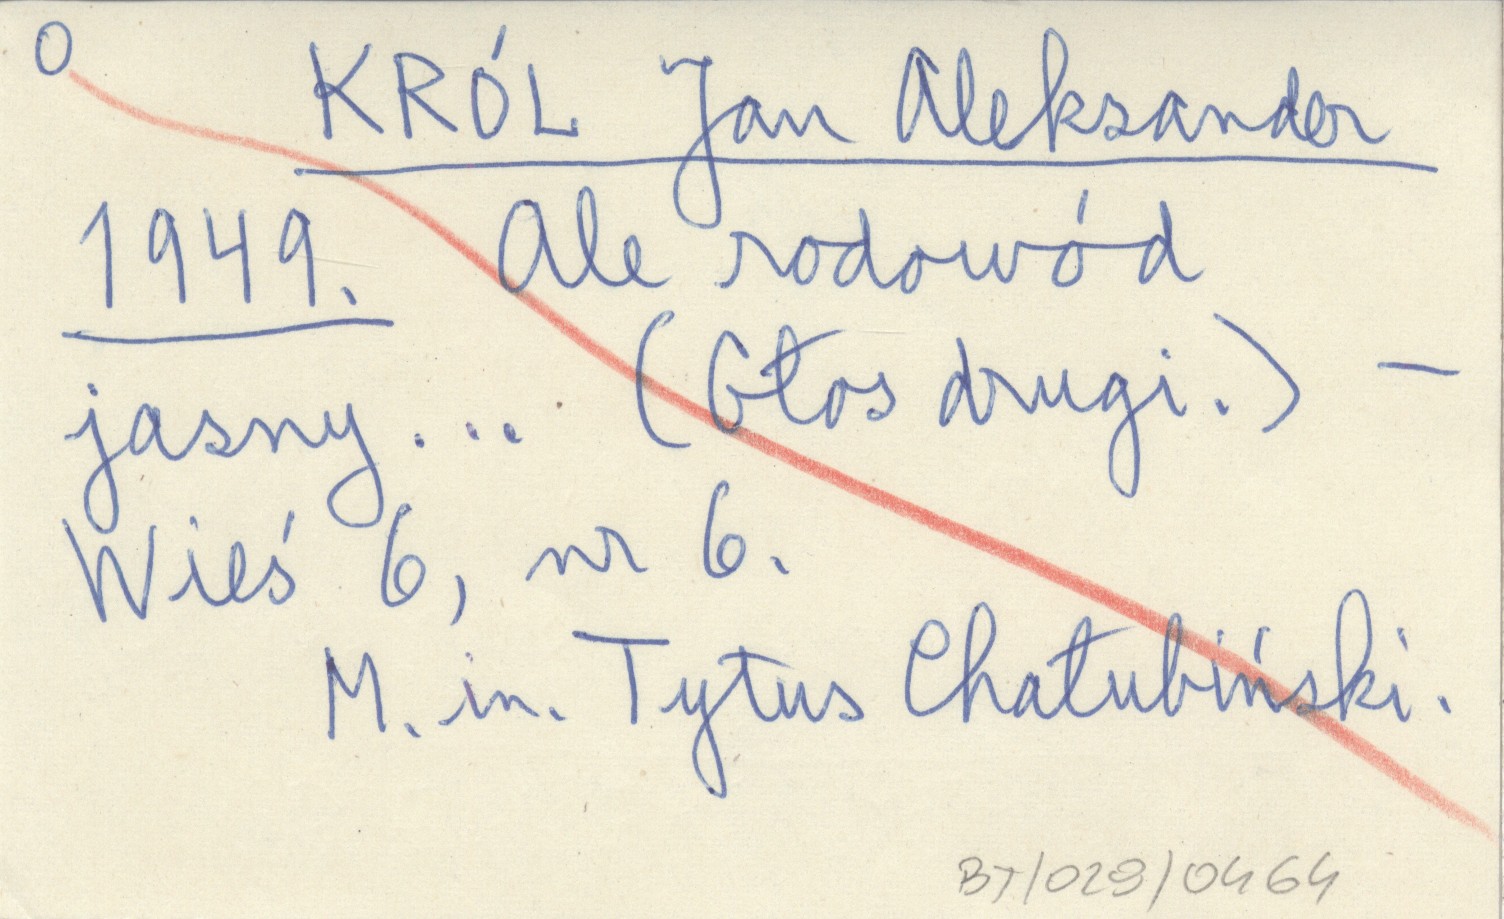 O
KRÓL Jan Aleksander
1949. Ale rodowód
jasny... (Głos drugi.) –
Wieś 6, nr 6.
M. in. Tytus Chałubiński.
BT/029/0464